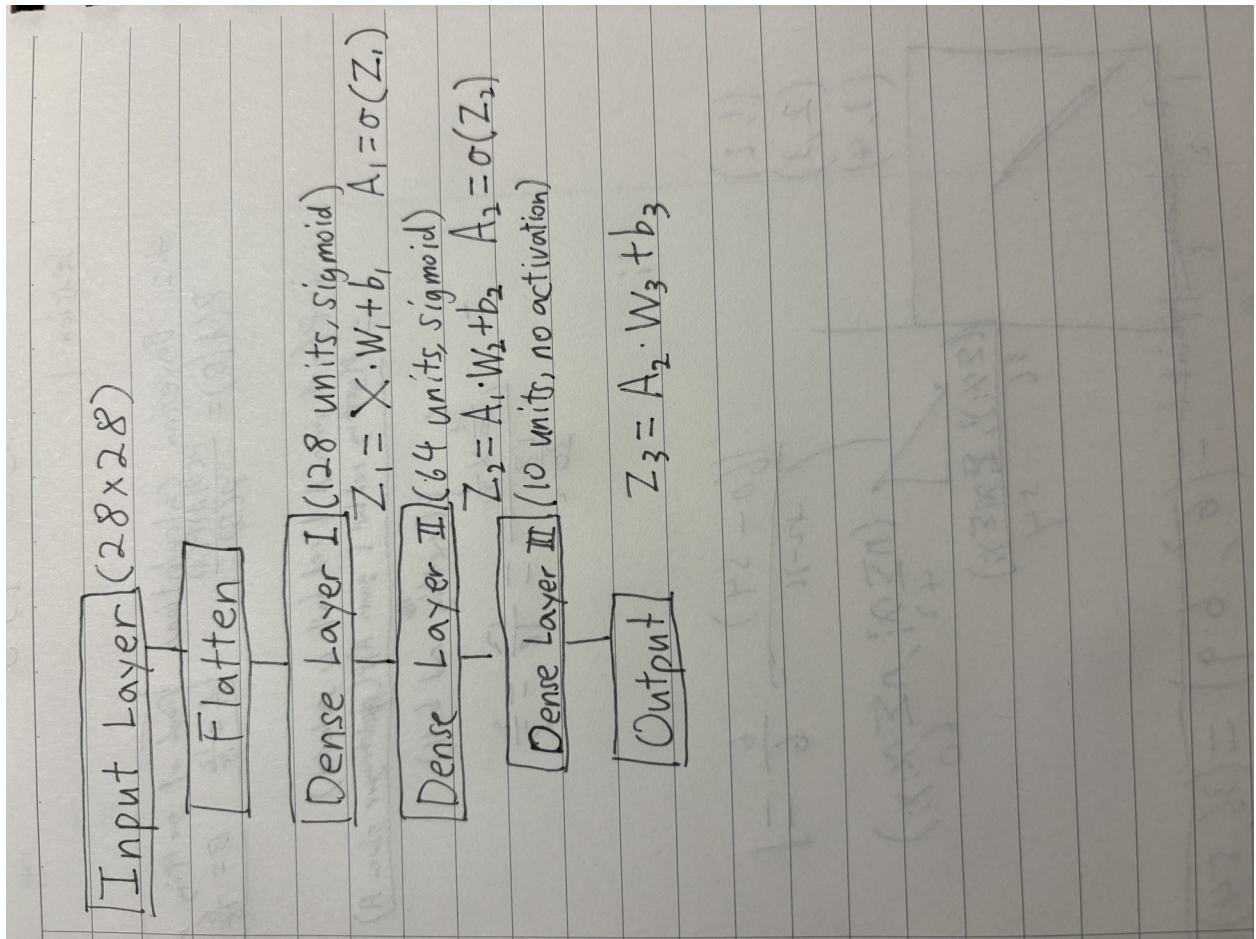 Input Layer (28×28)
Flatten
Dense Layer I (128 units, sigmoid)
Z₁ = X·W₁+b₁ A₁=σ(Z₁)
Dense Layer II (64 units, sigmoid)
Z₂=A₁·W₂+b₂ A₂=σ(Z₂)
Dense Layer III (10 units, no activation)
Output Z₃= A₂·W₃+b₃